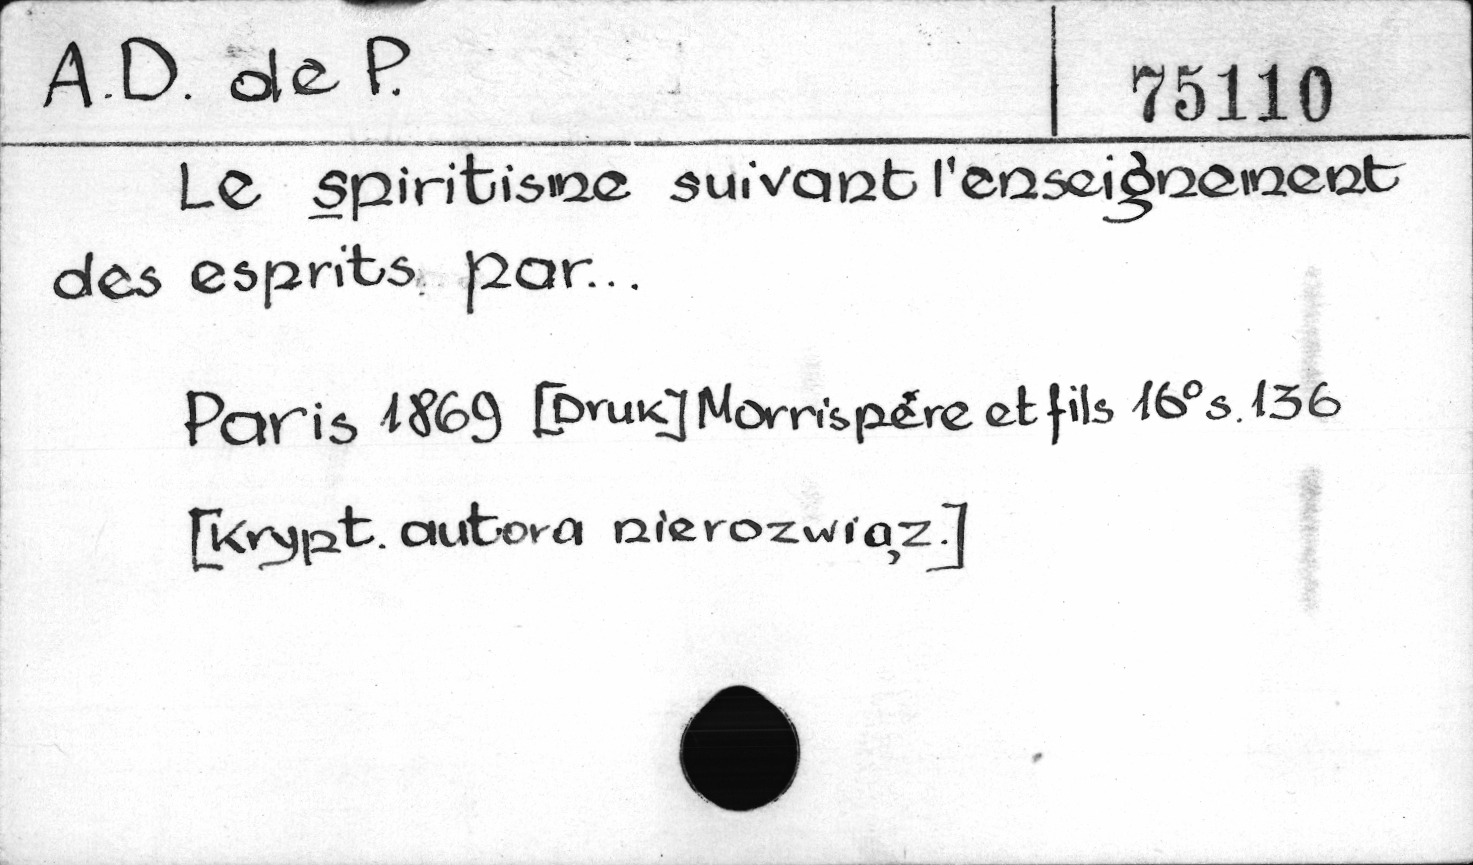 A.D. de P.
75110
Le spiritisme suivant l'enseignement
des esprits par...
Paris 1869 [Druk] Morris pére et fils 16° s. 136
[Krypt. autora nierozwiąz.]